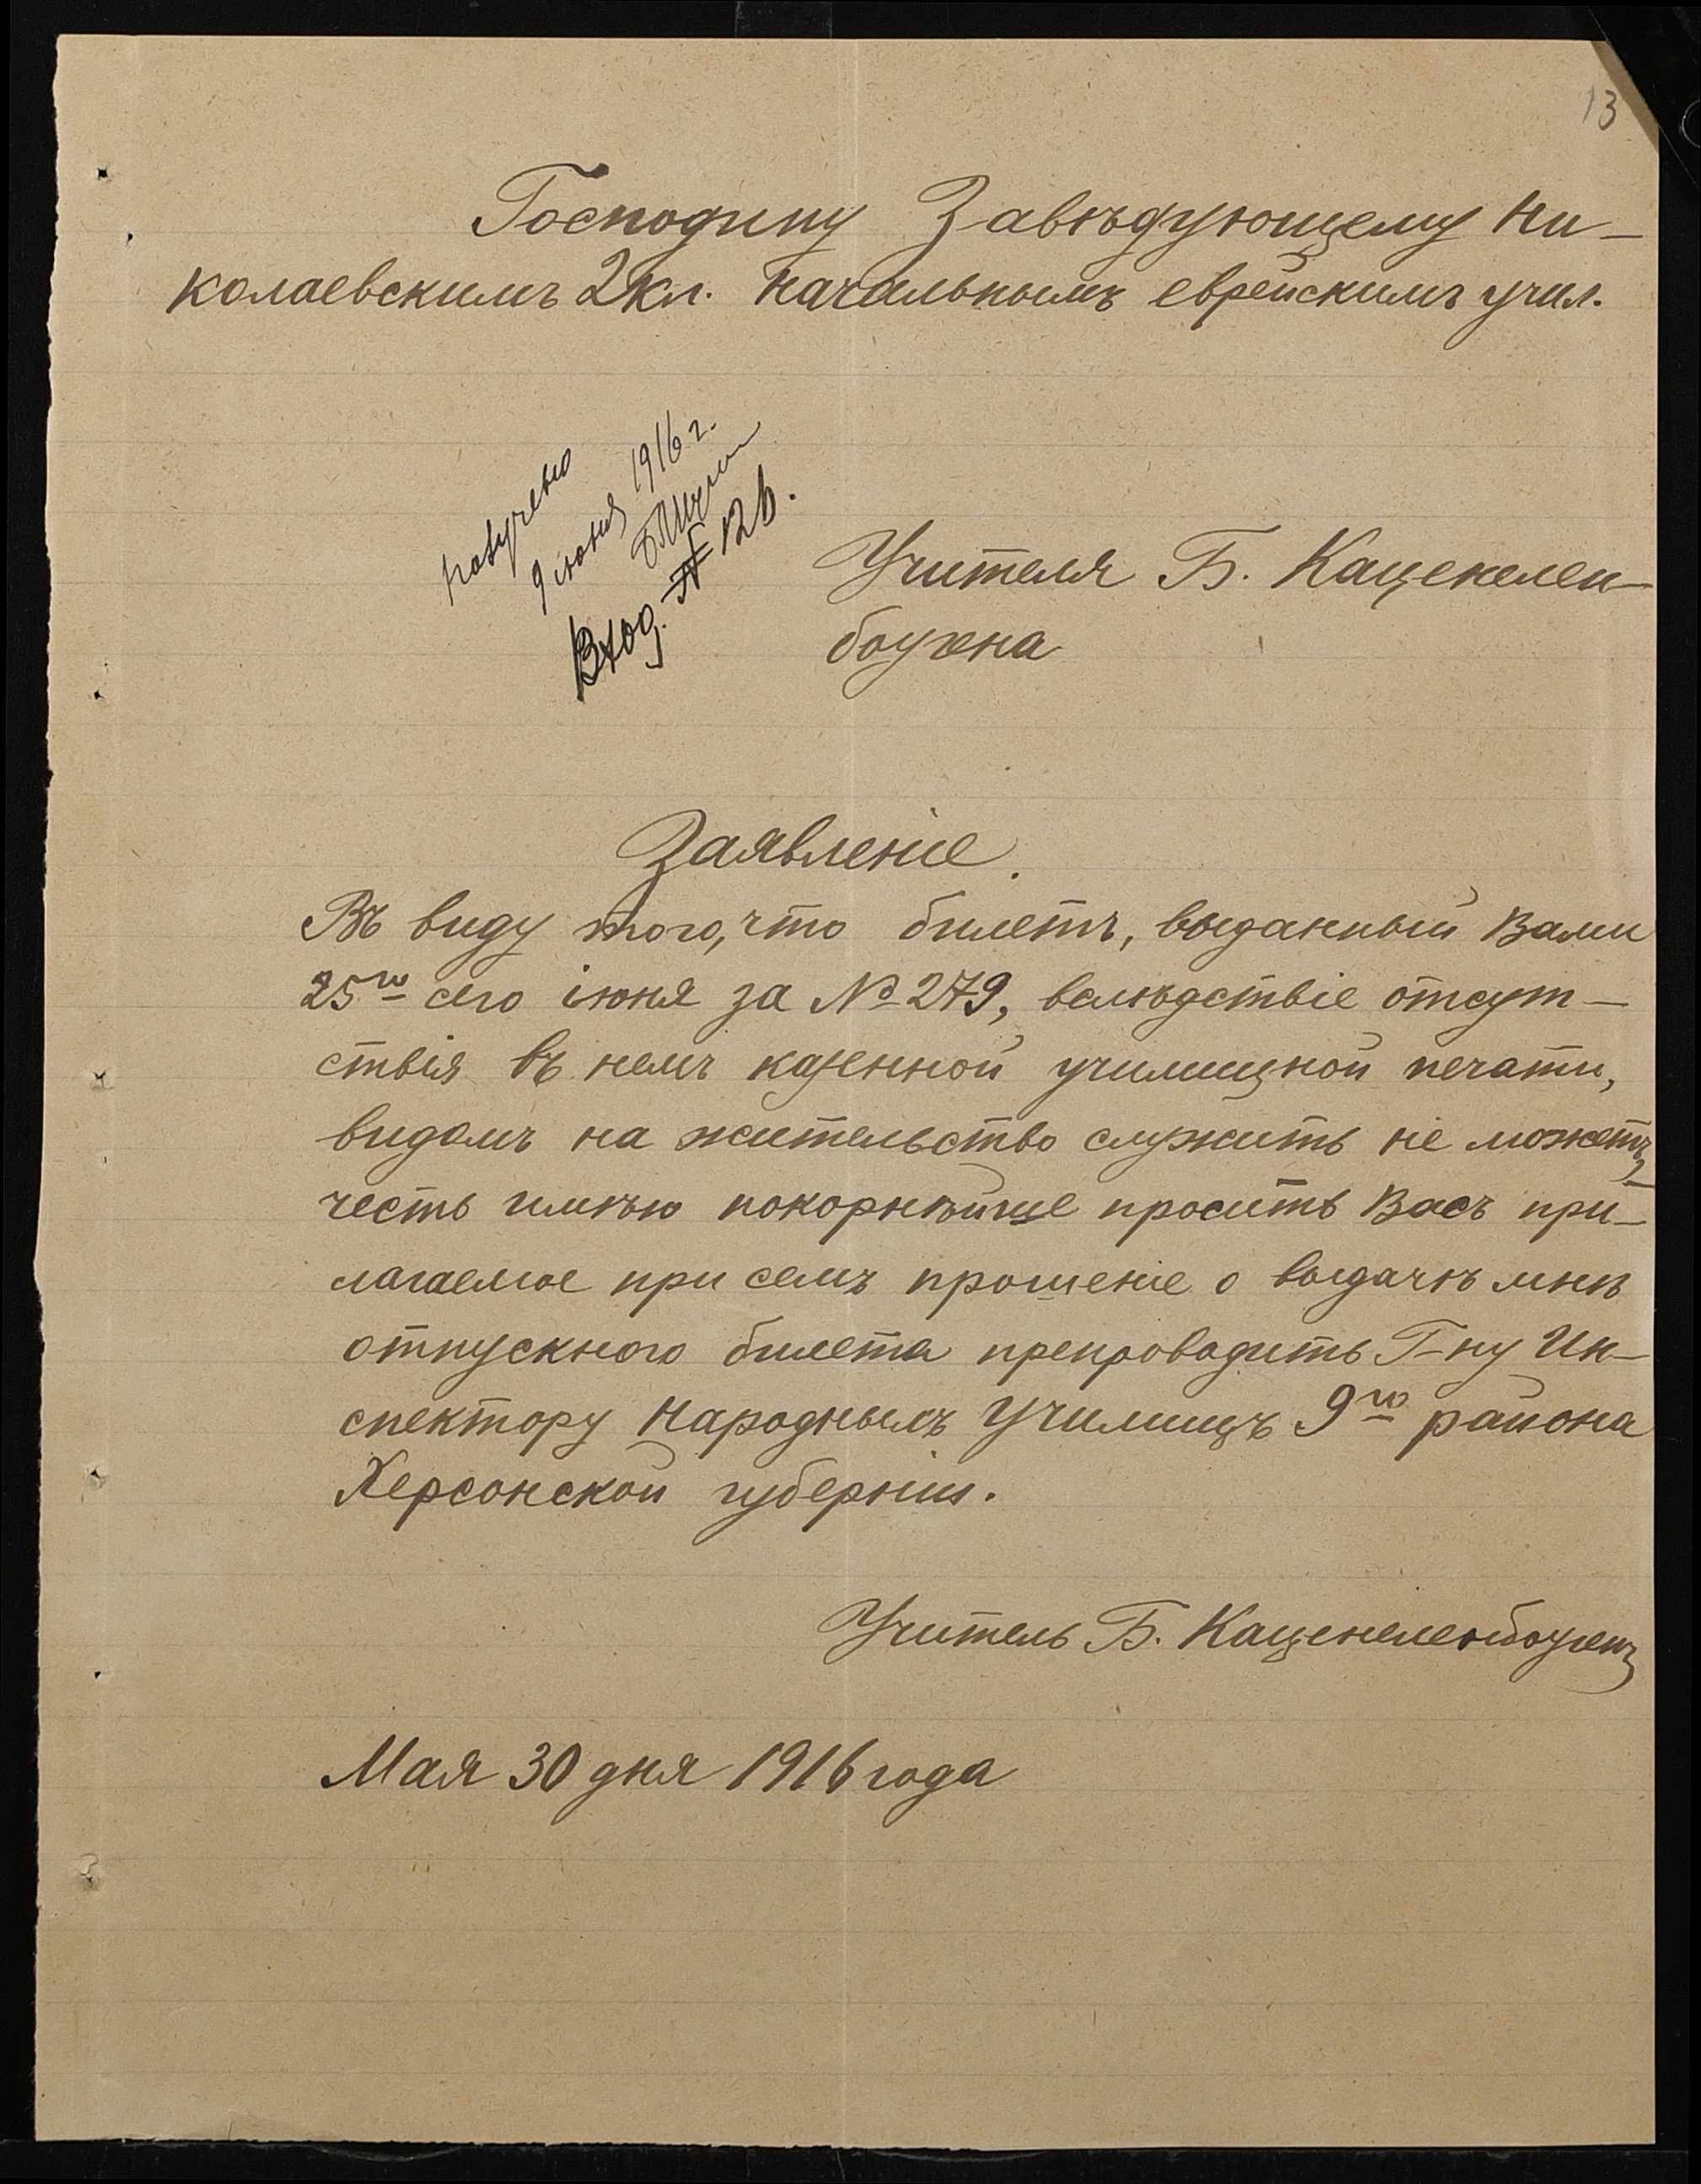 13
Господину Завѣдующему Ни-
колаевскимъ 2 кл. Начальнымъ еврейскимъ учил.
получено
9 июня 1916 г.
Вход. № 126.
Учителя Б. Каценелен-
богена
Заявленіе.
Въ виду того, что билетъ, выданный Вами
25го сего іюня за № 279, вслѣдствіе отсут-
ствія въ немъ казенной училищной печати,
видомъ на жительство служить не можетъ,
честь имѣю покорнѣйше просить Васъ при-
лагаемое при семъ прошеніе о выдачѣ мнѣ
отпускного билета препроводить Г-ну Ин-
спектору Народныхъ Училищъ 9го района
Херсонской губерніи.
Учитель Б. Каценеленбогенъ
Мая 30 дня 1916 года